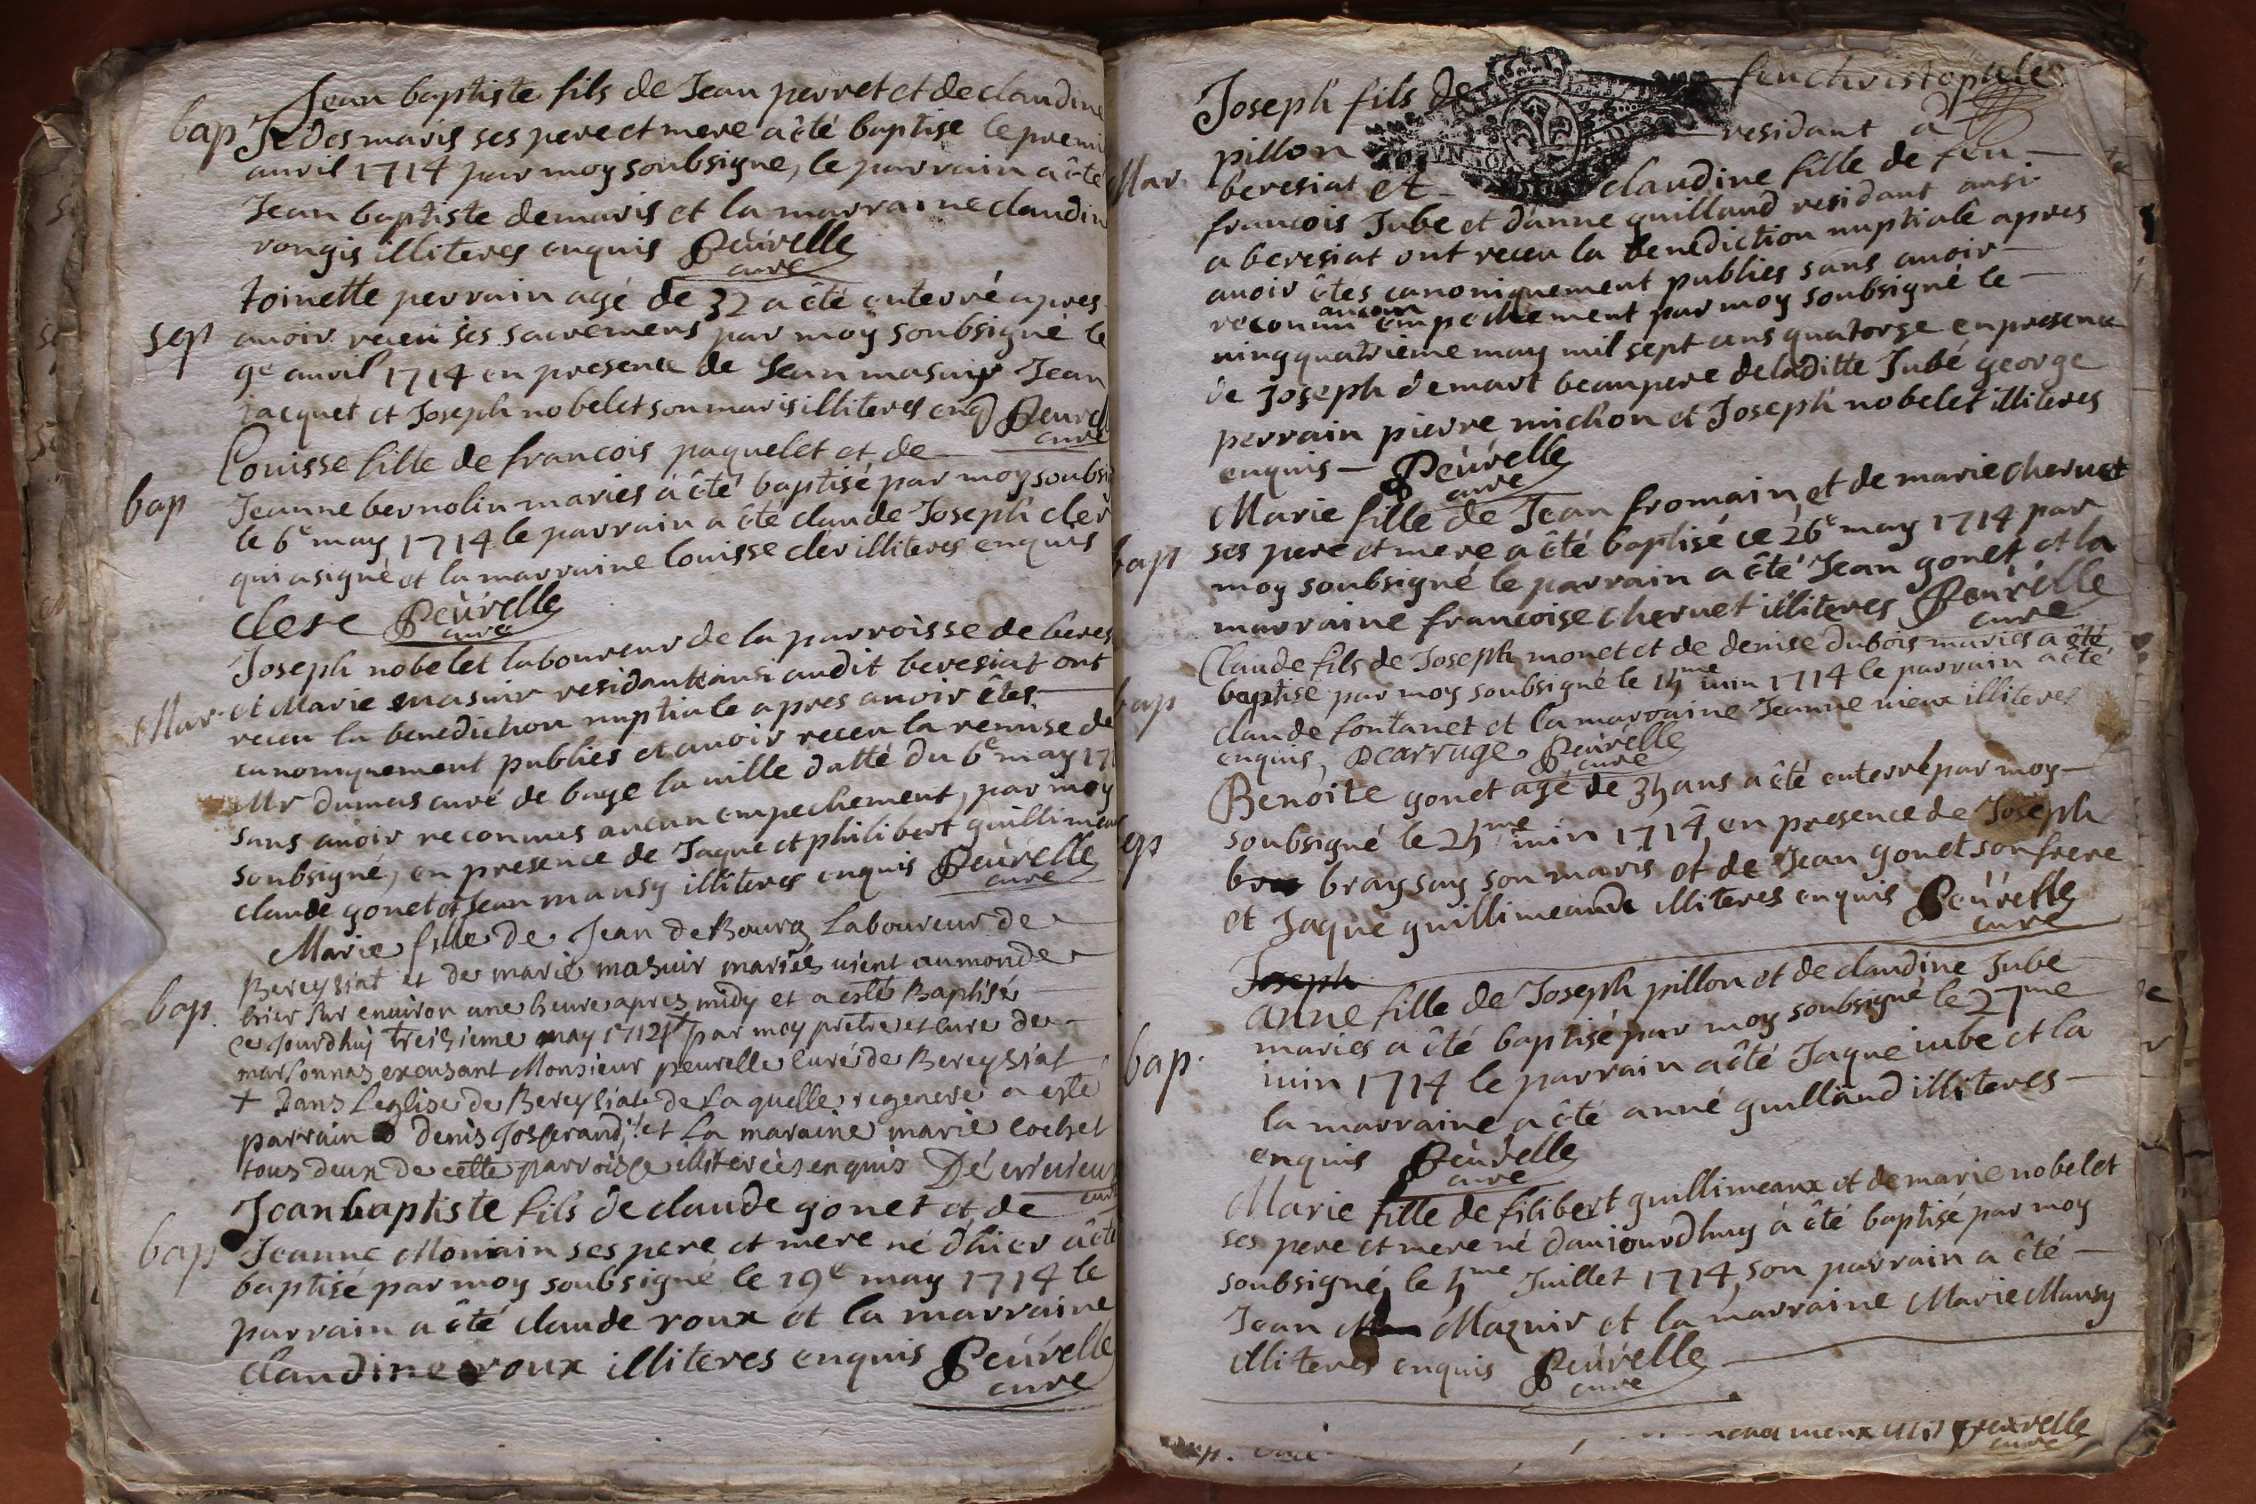 Jean baptiste fils de Jean perret et de claudine
bap
des maris ses pere et mere a êté baptise le premi
auril 1714 par moy soubsigne, le parrain a êté
Jean baptiste demaris et la marraine claudin
rongis illiteres enquis Peúrelle
cure
toinette perrain agé de 32 a êté enterré apres
sep
auoir receu ses sacremens par moy soubsigné le
9e auril 1714 en presence de Jean masuir Jean
jacquet et Joseph nobelet son maris illiteres enq Peurel
cure
Louisse fille de francois paquelet et de
bap
Jeanne bernolin maries á êté baptisé par moy soubsi
le 6e may 1714 le parrain a êté claude Joseph cler
qui a signé et la marraine louisse cler illiteres enquis
clere Peúrelle
cure
Joseph nobelet laboureur de la parroisse de beres
Mar
et Marie masuir residant ausi audit beresiat ont
receu la benediction nuptiale apres auoir êtes
canoniquement publies et auoir receu la remise de
Mr dumas curé de bage la uille datté du 6e may 17
sans auoir reconnus aucun empechement, par moy
soubsigné, en presence de Jaque et philibert guillimeau
claude gonet et Jean mansy illiteres enquis Peúrelle
cure
Marie fille de Jean de Bourg Laboureur de
Bereysiat et de marie masuir mariés uient au monde
bap.
hier sur enuiron une heure apres midy et a esté Baptisé
ce jourdhuj treisieme may 1714 + par moy pretre et cure de
marsonnas excusant Monsieur peurelle curé de Bereysiat
+ Dans Leglise de Bereysiat de La quelle regeneré a esté
parrain denis Josserand, et La maraine marie cochet
tous deux de cette parroisse illiterées enquis
curé
Jean baptiste fils de claude gonet et de
bap
Jeanne Monain ses pere et mere né dhier a êté
baptisé par moy soubsigné le 19e may 1714 le
parrain a êté claude roux et la marraine
claudine roux illiteres enquis Peúrelle
cure
Joseph fils de feu christophle
pillon residant a
Mar.
beresiat et claudine fille de feu
francois Jube et d'anne guilland residant ausi
a beresiat ont receu la benediction nuptiale apres
auoir êtes canoniquement publies sans auoir
reconnu aucun empechement par moy soubsigné le
uingquatrieme may mil sept cens quatorze en presence
de Joseph demart beaupere de laditte Jubé george
perrain pierre michon et Joseph nobelet illiteres
enquis Peúrelle
cure
Marie fille de Jean fromain, et de marie cheruet
bap
ses pere et mere a êté baptisé ce 26e may 1714 par
moy soubsigné le parrain a êté Jean gonet et la
marraine francoise cheruet illiteres Peúrelle
cure
Claude fils de Joseph monet et de denise dubois maries a êté
bap
baptise par moy soubsigné le 14me iuin 1714 le parrain a êté
claude fontanet et la marraine Jeanne nieux illiteres
enquis, Decarruge Peúrelle
cure
Benoite gonet agé de 34 ans a êté enterré par moy
soubsigné le 24me iuin 1714, en presence de Joseph
ep
braysay son maris et de Jean gonet son frere
et Jaque guillimeaude illiteres enquis Peúrelle
cure
Joseph
anne fille de Joseph pillon et de claudine Jube
maries a êté baptisé par moy soubsigné le 27me
bap.
iuin 1714 le parrain a êté Jaque iube et la
la marraine a êté anné guilland illiteres
enquis Peúrelle
cure
Marie fille de filibert guillimeaux et de marie nobelet
ses pere et mere né daujourdhuy a êté baptisé par moy
soubsigné, le 4me Juillet 1714, son parrain a êté
Jean Mazuir et la marraine Marie Mansy
illiteres enquis Peúrelle
cure
Peurelle
cure